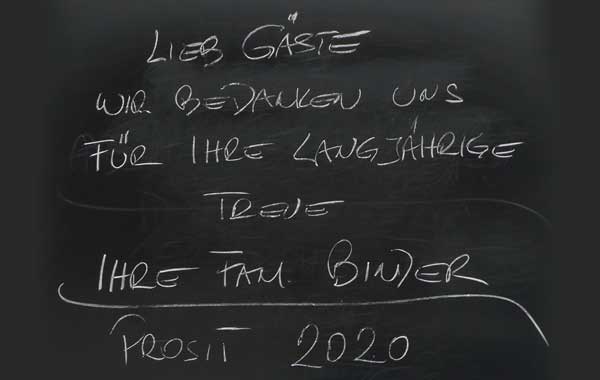 LIEB GÄSTE
WIR BEDANKEN UNS
FÜR IHRE LANGJÄHRIGE
TREUE
IHRE FAM. BINDER
PROSIT 2020